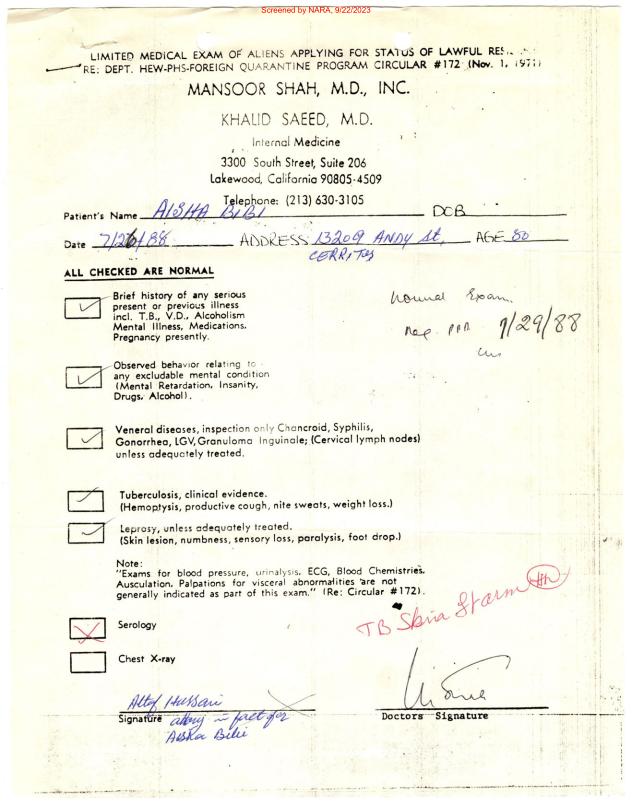 Screened by NARA, 9/22/2023
LIMITED MEDICAL EXAM OF ALIENS APPLYING FOR STATUS OF LAWFUL
RE: DEPT. HEW-PHS-FOREIGN QUARANTINE PROGRAM CIRCULAR #172 (Nov. 1, 1971)
MANSOOR SHAH, M.D., INC.
KHALID SAEED, M.D.
Internal Medicine
3300 South Street, Suite 206
Lakewood, California 90805-4509
Telephone: (213) 630-3105
Patient's Name AISHA BIBI DOB
Date 7/26/88 ADDRESS 13209 ANDY St. AGE 80
CERRITOS
ALL CHECKED ARE NORMAL
Brief history of any serious
present or previous illness
incl. T.B., V.D., Alcoholism
Mental Illness, Medications.
Pregnancy presently.
Normal Exam.
Neg. PPD 7/29/88
Observed behavior relating to
any excludable mental condition
(Mental Retardation, Insanity,
Drugs, Alcohol).
Veneral diseases, inspection only Chancroid, Syphilis,
Gonorrhea, LGV, Granuloma Inguinale; (Cervical lymph nodes)
unless adequately treated.
Tuberculosis, clinical evidence.
(Hemoptysis, productive cough, nite sweats, weight loss.)
Leprosy, unless adequately treated.
(Skin lesion, numbness, sensory loss, paralysis, foot drop.)
Note:
"Exams for blood pressure, urinalysis, ECG, Blood Chemistries.
Ausculation, Palpations for visceral abnormalities are not
generally indicated as part of this exam." (Re: Circular #172).
TB Skin
Serology
Chest X-ray
Altaf Hussain
Signature attony in fact for
Aisha Bibi
Doctors Signature